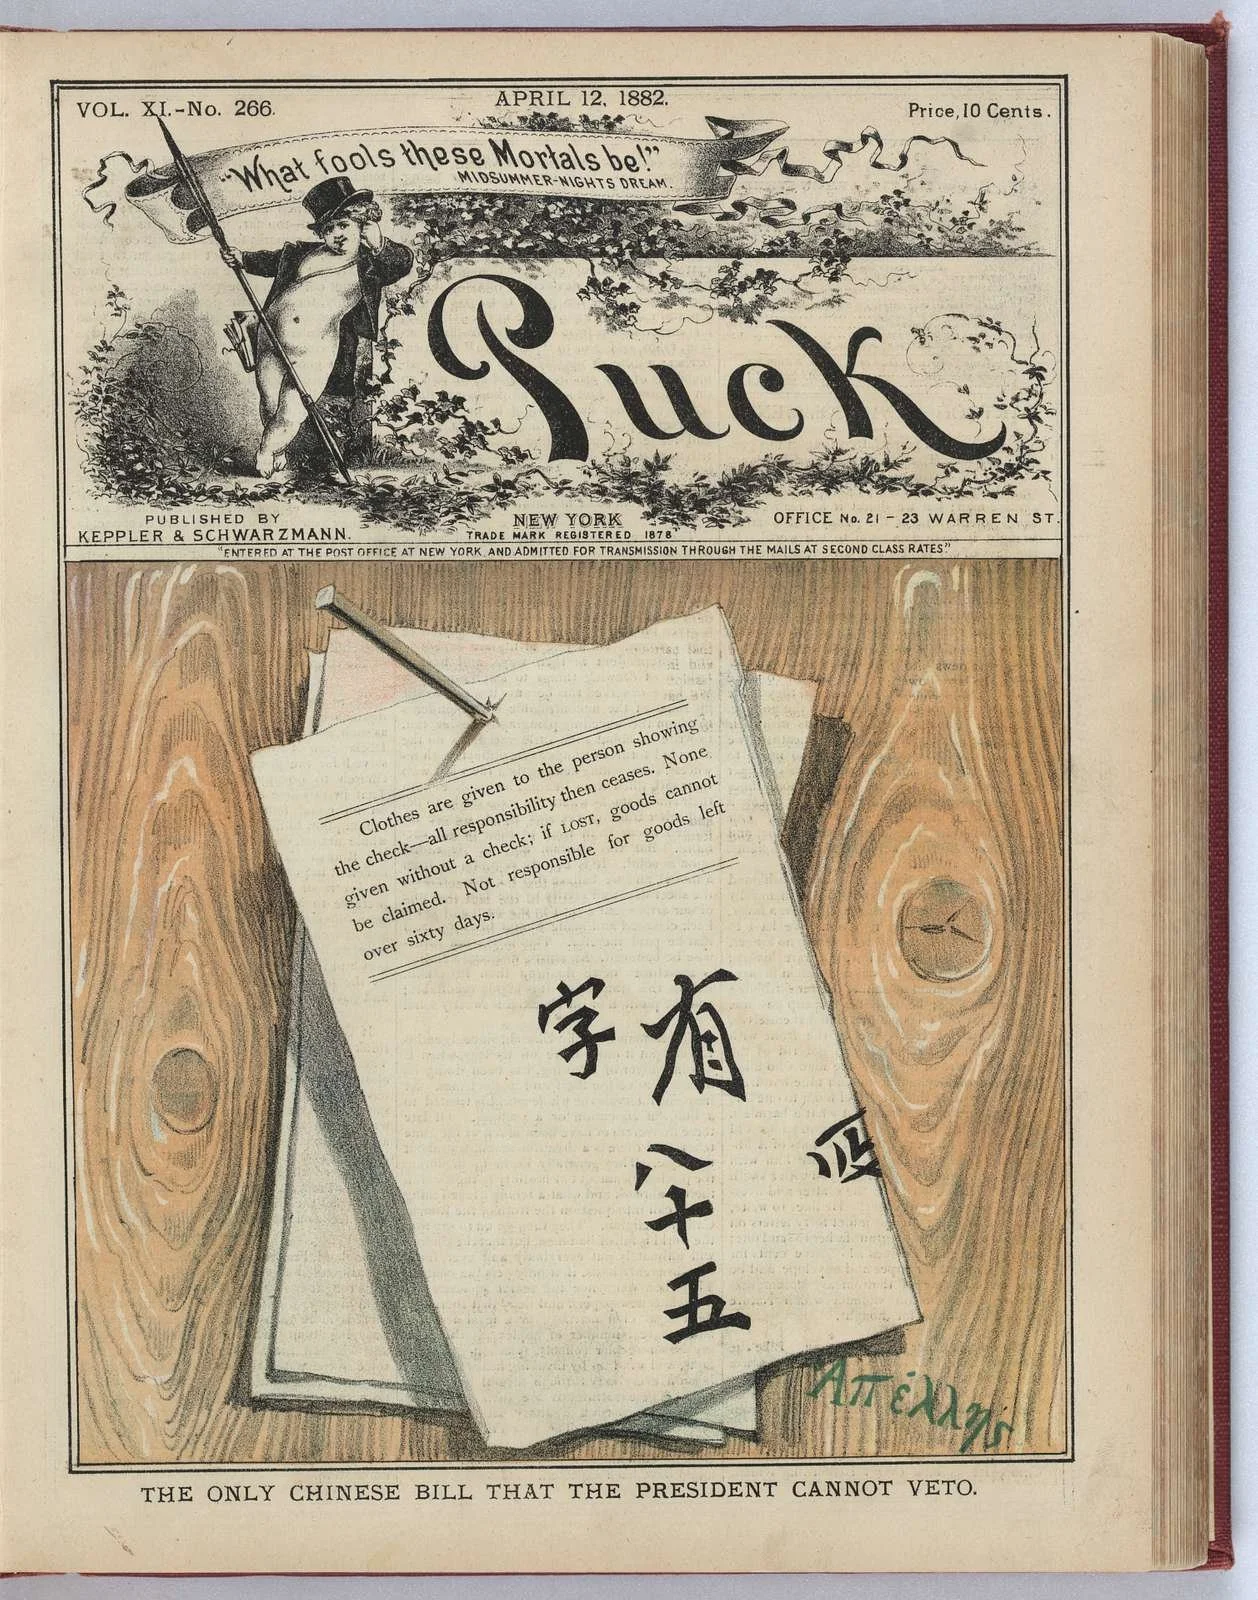 VOL. XI.-No. 266.
APRIL 12, 1882.
Price, 10 Cents.
"What fools these Mortals be!"
MIDSUMMER-NIGHTS DREAM.
Puck
PUBLISHED BY
KEPPLER & SCHWARZMANN.
NEW YORK
TRADE MARK REGISTERED 1878
OFFICE No. 21 - 23 WARREN ST.
"ENTERED AT THE POST OFFICE AT NEW YORK, AND ADMITTED FOR TRANSMISSION THROUGH THE MAILS AT SECOND CLASS RATES"
Clothes are given to the person showing
the check—all responsibility then ceases. None
given without a check; if LOST, goods cannot
be claimed. Not responsible for goods left
over sixty days.
字
有
八
十
五
Ἀπέλλης
THE ONLY CHINESE BILL THAT THE PRESIDENT CANNOT VETO.